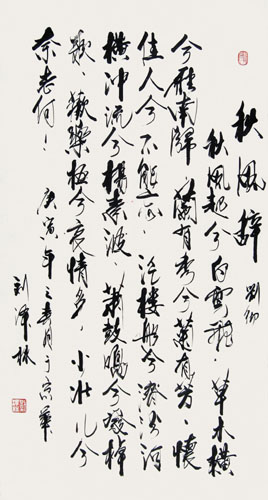 秋風辭
劉彻
秋風起兮白雲飛，草木横
兮雁南歸，蘭有秀兮菊有芳，懷
佳人兮不能忘，汎樓船兮濟汾河
横冲流兮楊素波，萧鼓鳴兮發棹
歌、歡樂極兮哀情多，小壯几兮
奈老何！
庚寅年之春月于京華
刘泽林